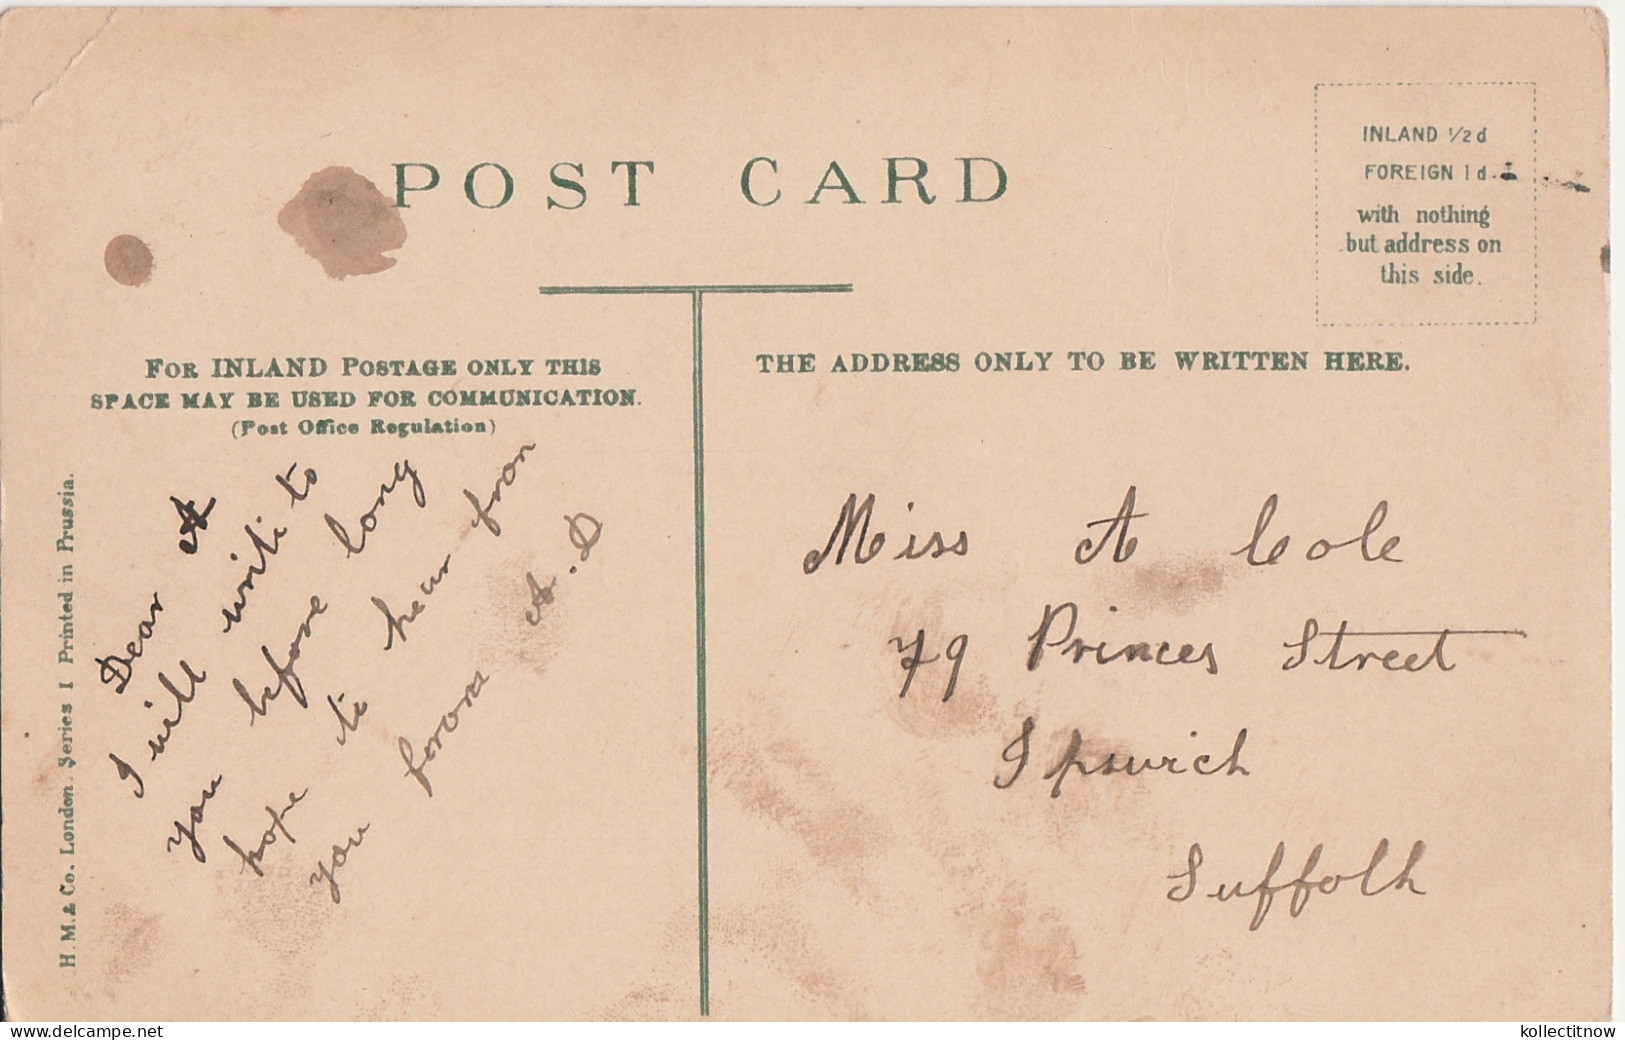 POST CARD
INLAND 1/2d
FOREIGN 1d.
with nothing
but address on
this side.
FOR INLAND POSTAGE ONLY THIS
SPACE MAY BE USED FOR COMMUNICATION.
(Post Office Regulation)
THE ADDRESS ONLY TO BE WRITTEN HERE.
H. M. & Co. London. Series I Printed in Prussia.
Dear A
I will write to
you before long
hope to hear from
you from A.D
Miss A Cole
79 Princes Street
Ipswich
Suffolk
delcampe.net
kollectitnow